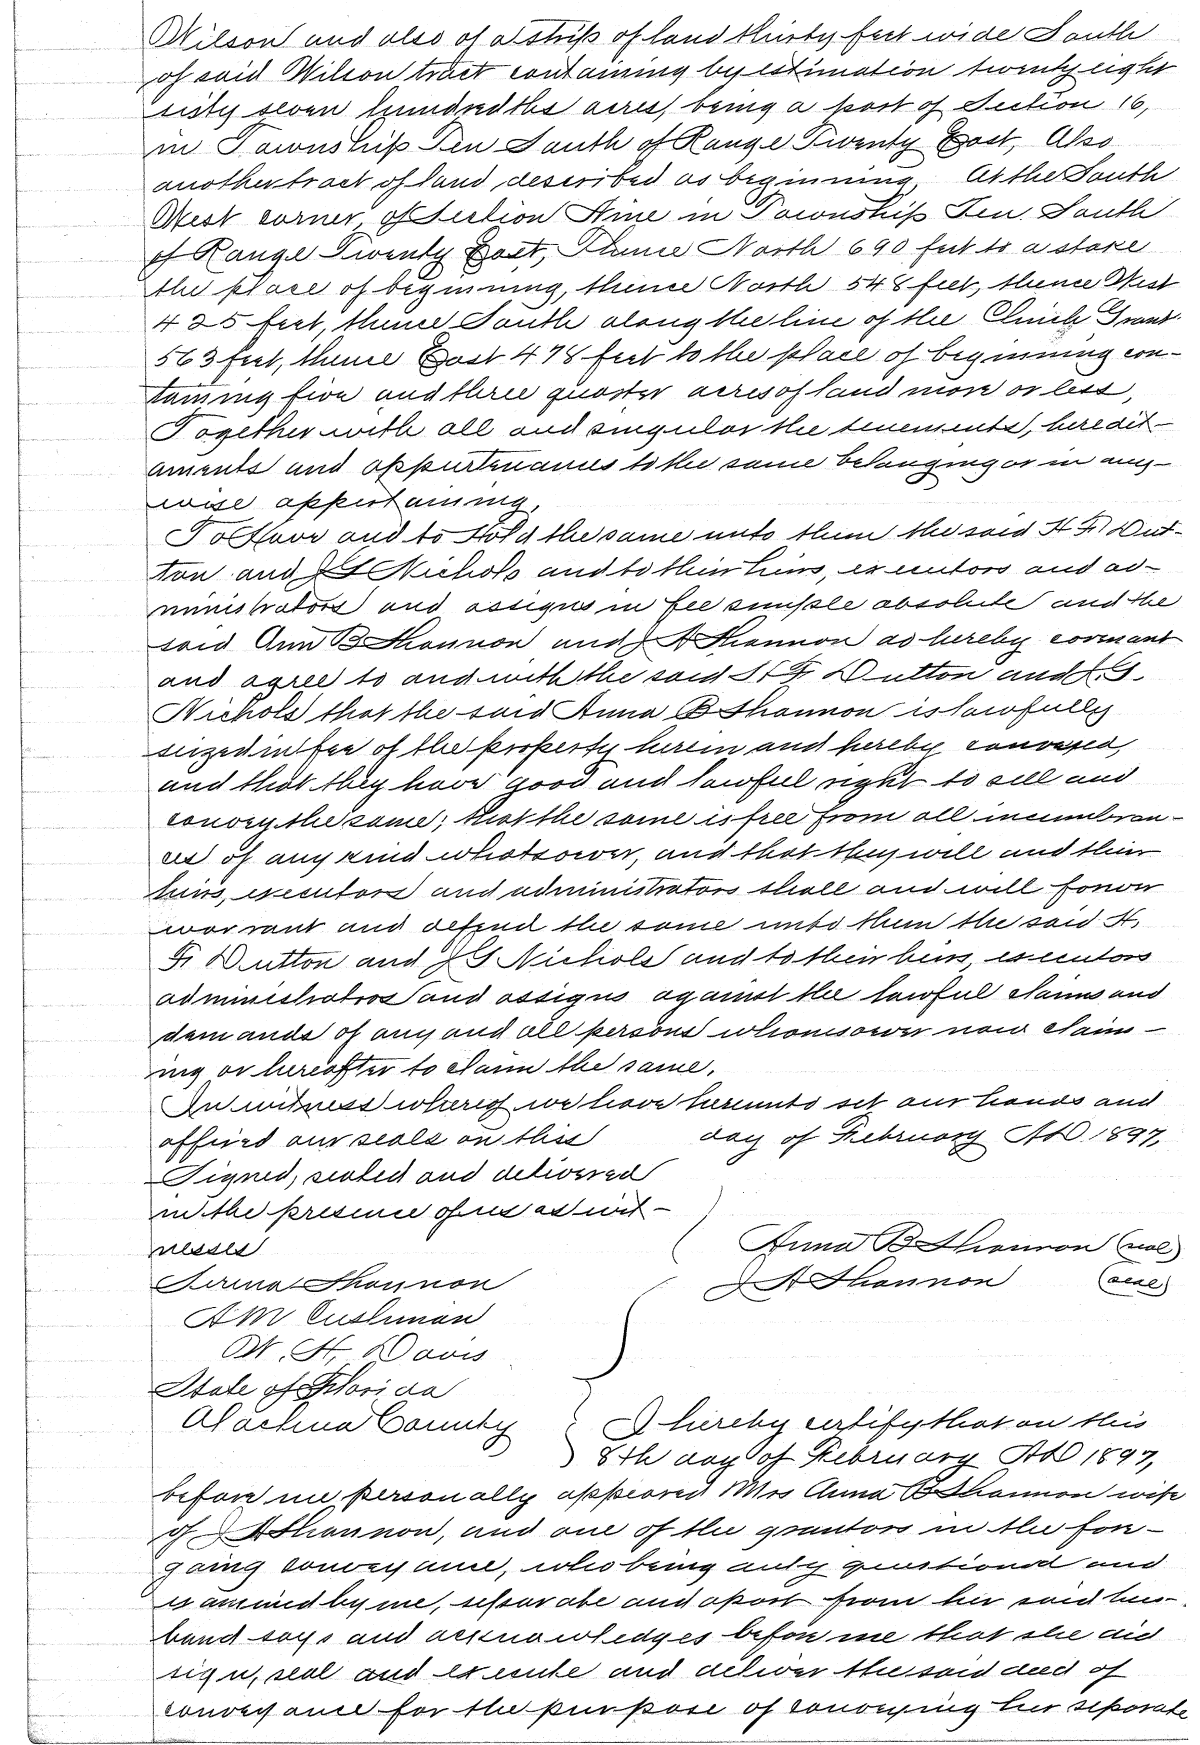 Wilson and also of a strip of land thirty feet wide South
of said Wilson tract containing by estimation twenty eight
sixty seven hundredths acres, being a part of Section 16,
in Township Ten South of Range Twenty East, Also
another tract of land described as beginning, At the South
West corner of Section Nine in Township Ten South
of Range Twenty East, Thence North 690 feet to a stake
the place of beginning, thence North 548 feet, thence West
425 feet, thence South along the line of the Clinch Grant
563 feet, thence East 478 feet to the place of beginning con-
taining five and three quarter acres of land more or less,
Together with all and singular the tenements, heredit-
aments and appurtenances to the same belonging or in any-
wise appertaining,
To Have and to Hold the same unto them the said H F. Dut-
ton and J G Nichols and to their heirs, executors and ad-
ministrators and assigns in fee simple absolute and the
said Ann B Shannon and J A Shannon do hereby covenant
and agree to and with the said H F Dutton and J. G.
Nichols that the said Anna B Shannon is lawfully
seized in fee of the property herein and hereby conveyed,
and that they have good and lawful right to sell and
convey the same; that the same is free from all incumbran-
ces of any kind whatsoever, and that they will and their
heirs, executors and administrators shall and will forever
warrant and defend the same unto them the said H.
F. Dutton and J G Nichols and to their heirs, executors
administrators and assigns against the lawful claims and
demands of any and all persons whomsoever now claim-
ing or hereafter to claim the same.
In witness whereof we have hereunto set our hands and
affixed our seals on this day of February AD. 1897,
Signed, sealed and delivered
in the presence of us as wit-
nesses
Anna B Shannon (seal)
Shannon
J A Shannon (seal)
A M Cushman
W. H. Davis
State of Florida
Alachua County
I hereby certify that on this
8th day of February AD 1897,
before me personally appeared Mrs Anna B Shannon wife
of J A Shannon, and one of the grantors in the fore-
going conveyance, who being duly questioned and
examined by me, separate and apart from her said hus-
band says and acknowledges before me that she did
sign, seal and execute and deliver the said deed of
conveyance for the purpose of conveying her separate